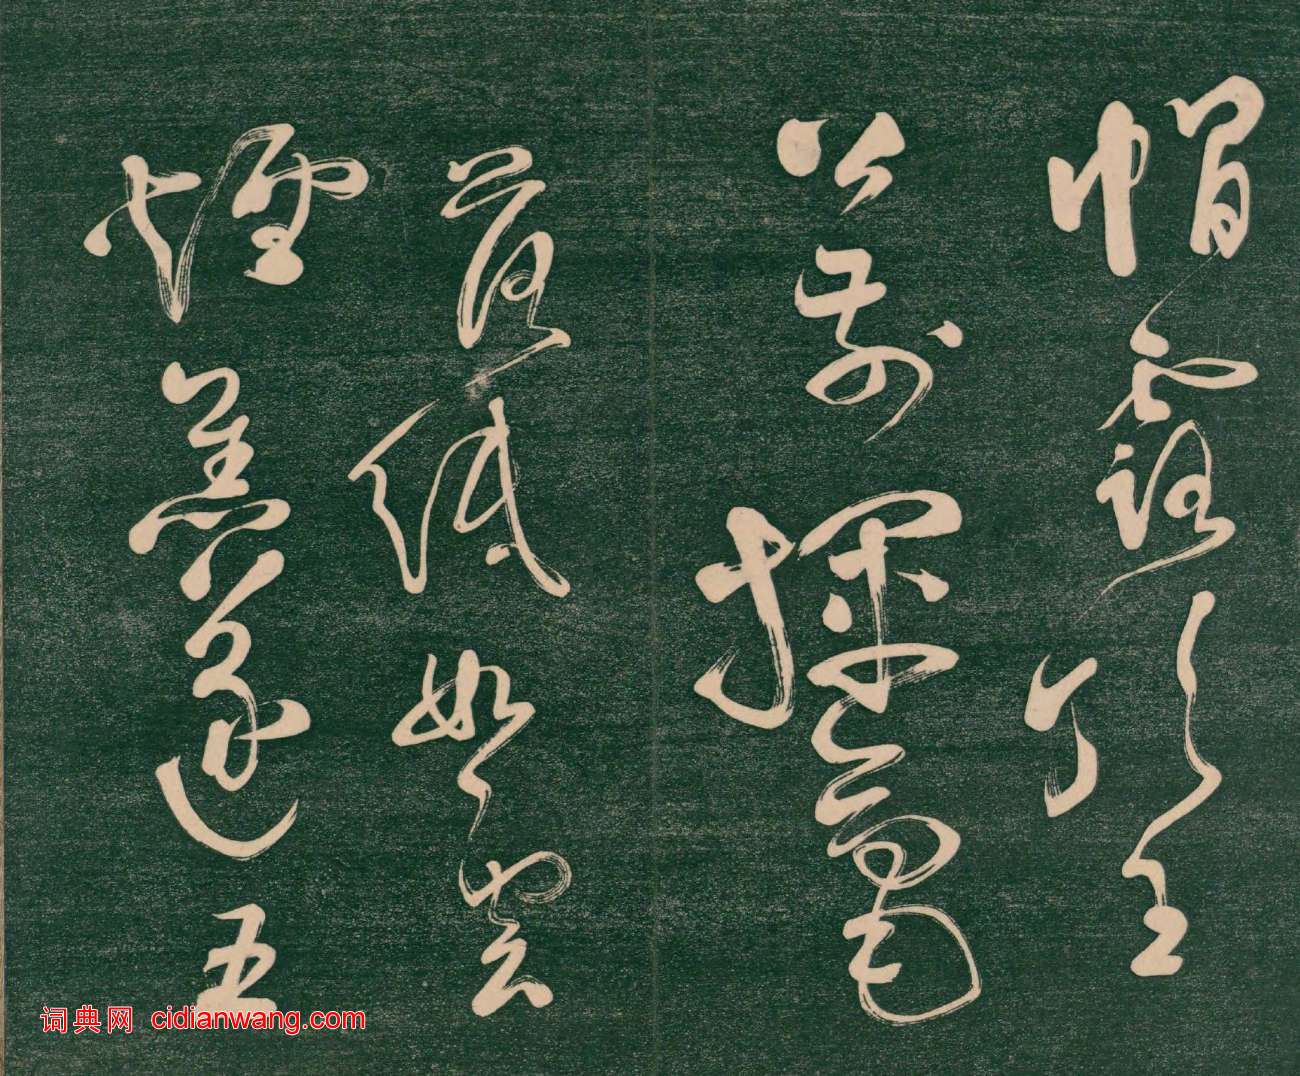 帽露頂王
公前揮毫
落紙如雲
煙焦遂五
词典网 cidianwang.com